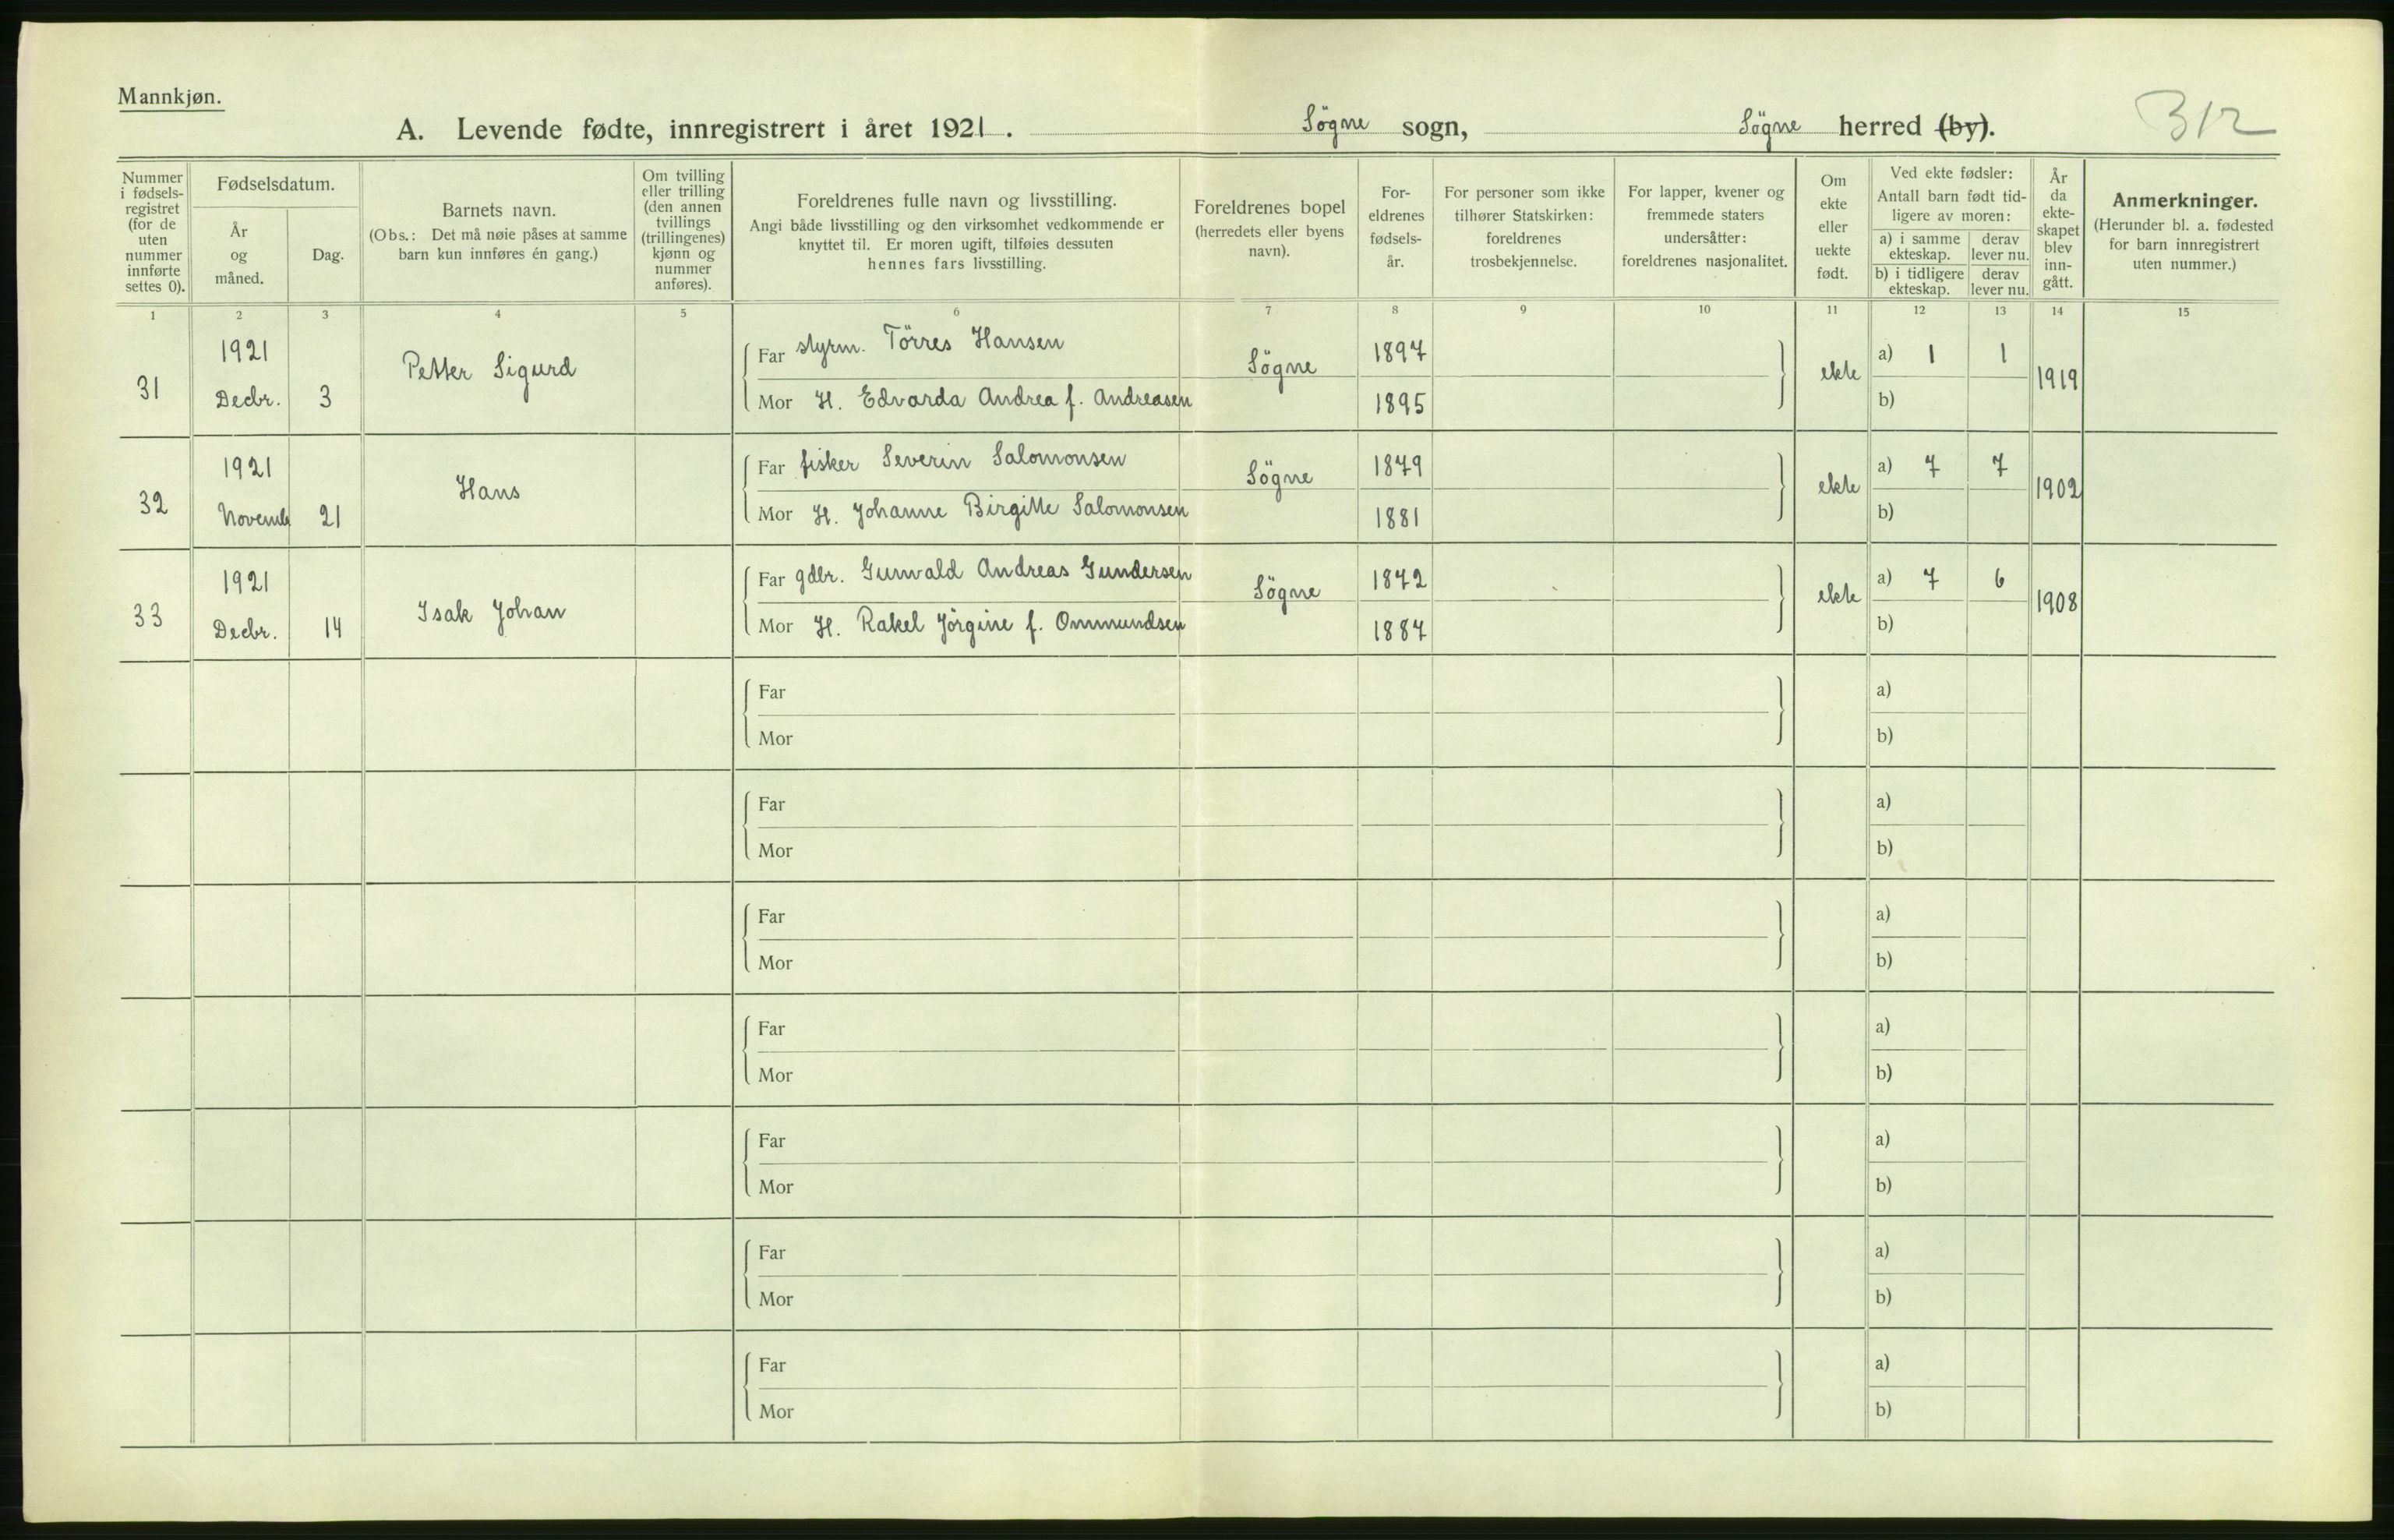 Mannkjøn.
A. Levende fødte, innregistrert i året 1921. Søgne sogn, Søgne herred (by). 312
Nummer i fødsels-registret (for de uten nummer innførte settes 0).
Fødselsdatum.
År og måned.
Dag.
Barnets navn.
(Obs.: Det må nøie påses at samme barn kun innføres én gang.)
Om tvilling eller trilling (den annen tvillings (trillingenes) kjønn og nummer anføres).
Foreldrenes fulle navn og livsstilling.
Angi både livsstilling og den virksomhet vedkommende er knyttet til. Er moren ugift, tilføies dessuten hennes fars livsstilling.
Foreldrenes bopel (herredets eller byens navn).
For-eldrenes fødsels-år.
For personer som ikke tilhører Statskirken: foreldrenes trosbekjennelse.
For lapper, kvener og fremmede staters undersåtter: foreldrenes nasjonalitet.
Om ekte eller uekte født.
Ved ekte fødsler:
Antall barn født tid-ligere av moren:
a) i samme ekteskap. derav lever nu.
b) i tidligere ekteskap. derav lever nu.
År da ekte-skapet blev inn-gått.
Anmerkninger.
(Herunder bl. a. fødested for barn innregistrert uten nummer.)
1 2 3 4 5 6 7 8 9 10 11 12 13 14 15
31 1921 Decbr. 3 Petter Sigurd Far styrm. Törres Hansen Søgne 1897 ekte a) 1 1 1919
Mor H. Edvarda Andrea f. Andreasen 1895 b)
32 1921 Novemb 21 Hans Far fisker Severin Salomonsen Søgne 1879 ekte a) 7 7 1902
Mor H. Johanne Birgitte Salomonsen 1881 b)
33 1921 Decbr. 14 Isak Johan Far gdbr. Gunvald Andreas Gundersen Søgne 1872 ekte a) 7 6 1908
Mor H. Rakel Jörgine f. Ommundsen 1887 b)
Far a)
Mor b)
Far a)
Mor b)
Far a)
Mor b)
Far a)
Mor b)
Far a)
Mor b)
Far a)
Mor b)
Far a)
Mor b)